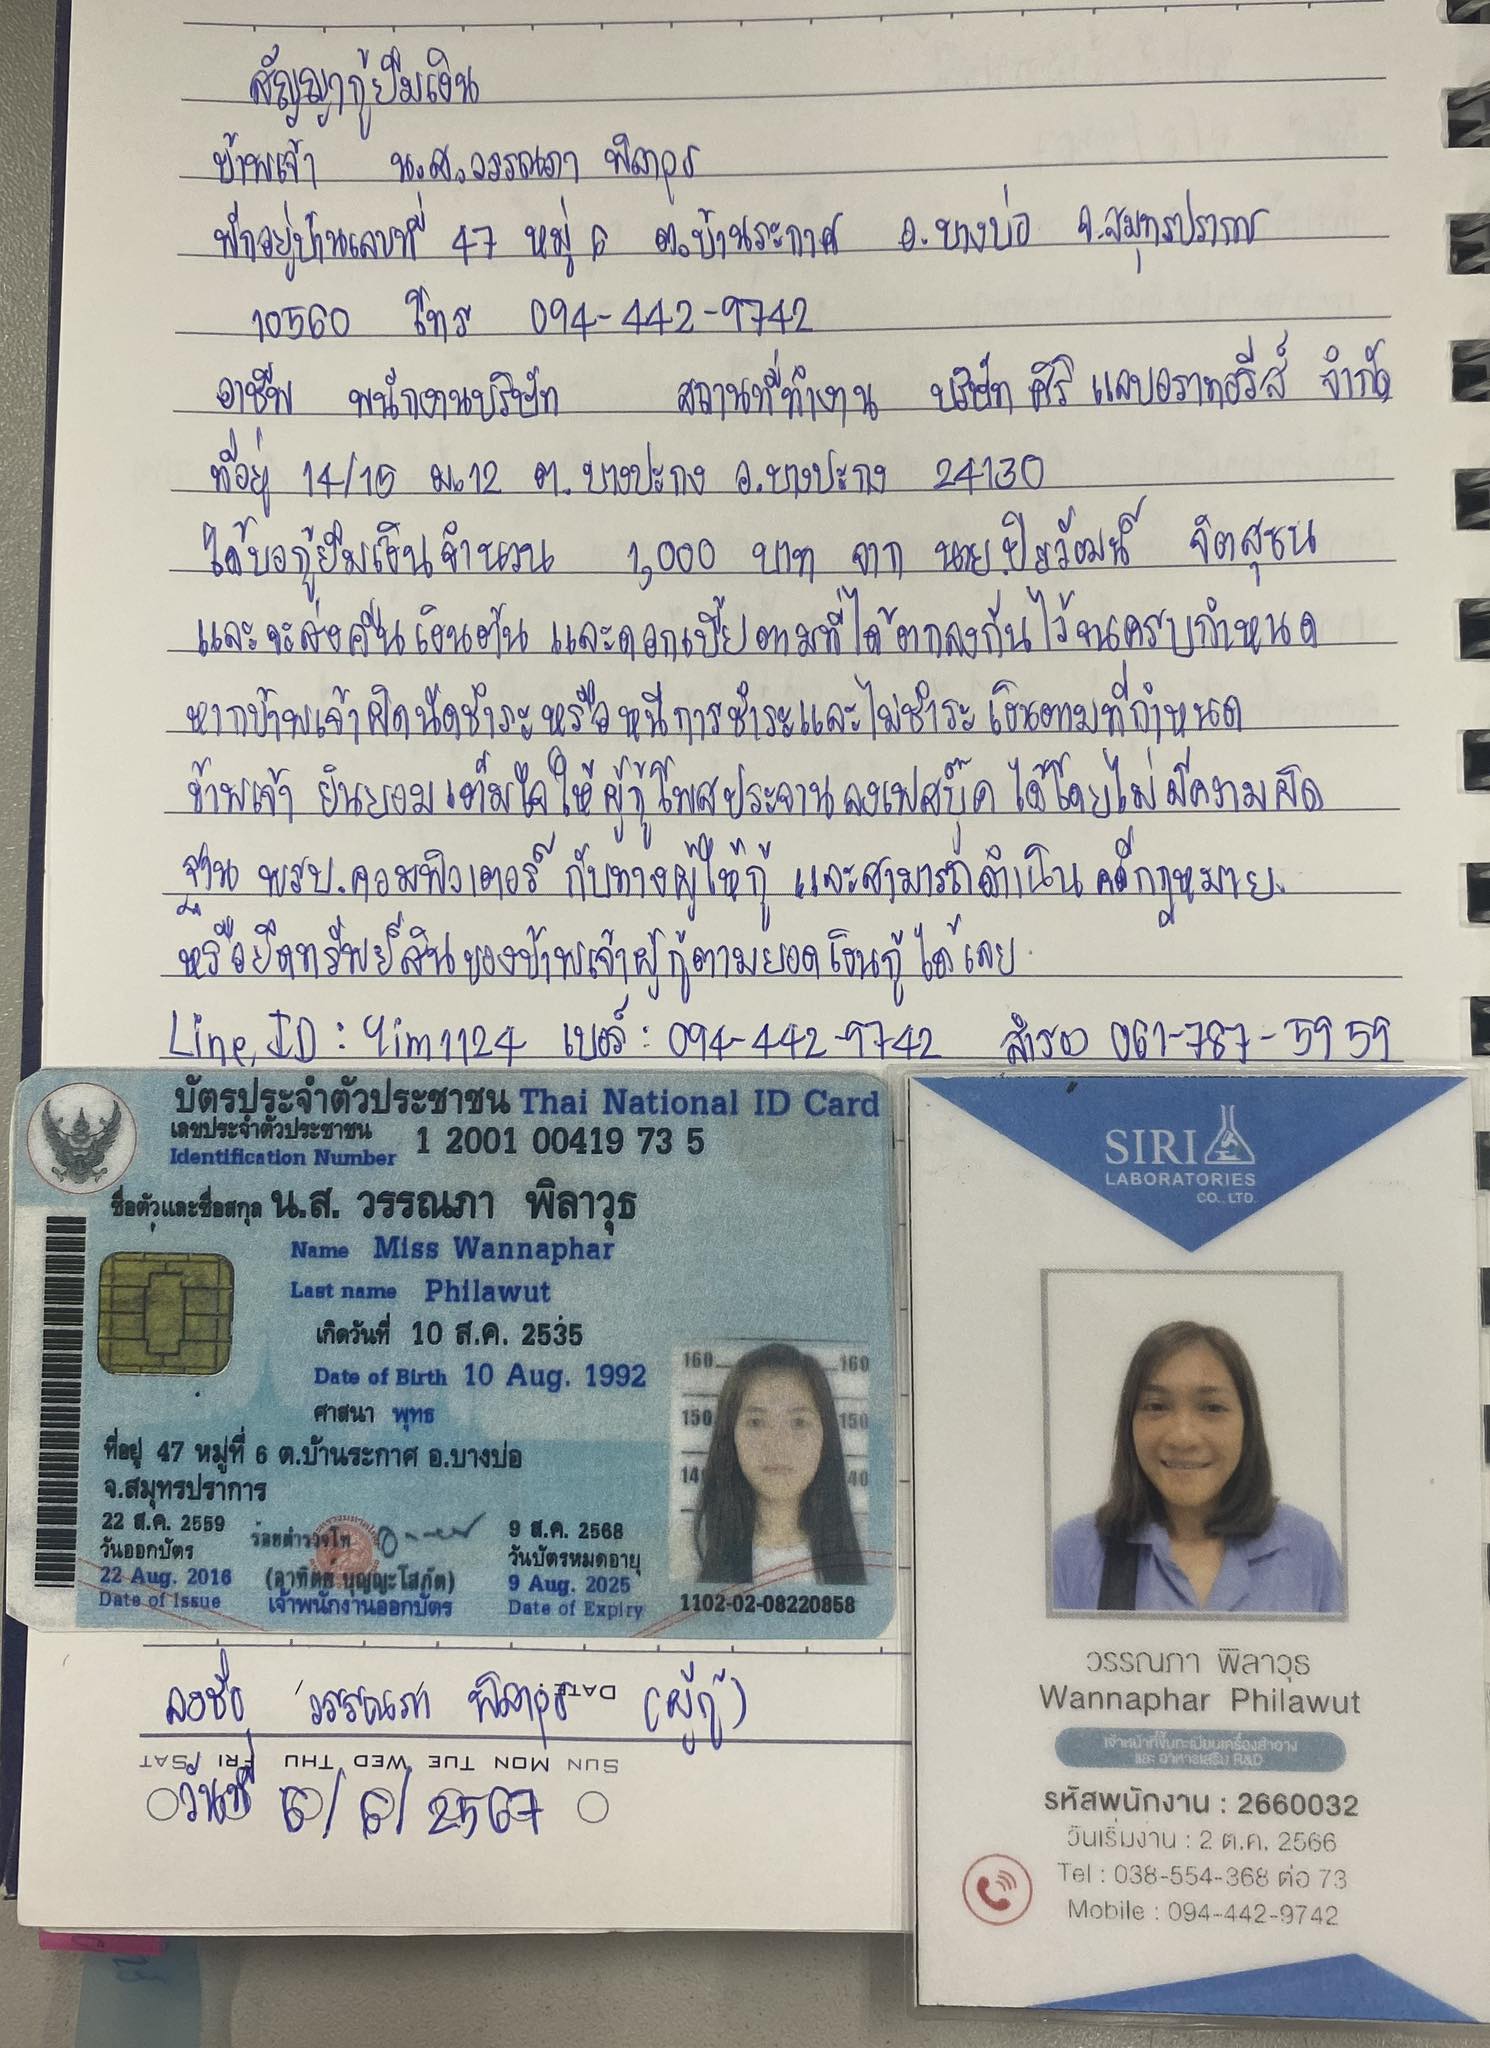 สัญญากู้ยืมเงิน
ข้าพเจ้า น.ส.วรรณภา พิลาวุธ
พักอยู่บ้านเลขที่ 47 หมู่ 6 ต.บ้านระกาศ อ.บางบ่อ จ.สมุทรปราการ
10560 โทร 094-442-9742
อาชีพ พนักงานบริษัท สถานที่ทำงาน บริษัท ศิริ แลบอราทอรีส์ จำกัด
ที่อยู่ 14/15 ม.12 ต.บางปะกง อ.บางปะกง 24130
ได้ขอกู้ยืมเงินจำนวน 1,000 บาท จาก นาย.ปิยวัฒน์ จิตสุชน
และจะส่งคืนเงินต้น และดอกเบี้ยตามที่ได้ตกลงกันไว้จนครบกำหนด
หากข้าพเจ้าผิดนัดชำระหรือหนีการชำระและไม่ชำระเงินตามที่กำหนด
ข้าพเจ้า ยินยอมเต็มใจให้ผู้กู้โพสประจานลงเฟสบุ๊ค ได้โดยไม่มีความผิด
ฐาน พรบ.คอมพิวเตอร์ กับทางผู้ให้กู้ และสามารถดำเนินคดีกฎหมาย.
หรือยึดทรัพย์สินของข้าพเจ้าผู้กู้ตามยอดเงินกู้ได้เลย.
Line ID : Yim1124 เบอร์ : 094-442-9742 สำรอง 061-787-5959
บัตรประจำตัวประชาชน Thai National ID Card
เลขประจำตัวประชาชน 1 2001 00419 73 5
Identification Number
ชื่อตัวและชื่อสกุล น.ส. วรรณภา พิลาวุธ
Name Miss Wannaphar
Last name Philawut
เกิดวันที่ 10 ส.ค. 2535
Date of Birth 10 Aug. 1992
ศาสนา พุทธ
160 160
150 150
14 40
ที่อยู่ 47 หมู่ที่ 6 ต.บ้านระกาศ อ.บางบ่อ
จ.สมุทรปราการ
22 ส.ค. 2559
วันออกบัตร
22 Aug. 2016
Date of Issue
ร้อยตำรวจโท
(อาทิตย์ บุญญะโสภัต)
เจ้าพนักงานออกบัตร
9 ส.ค. 2568
วันบัตรหมดอายุ
9 Aug. 2025
Date of Expiry
1102-02-08220858
SIRI
LABORATORIES
CO., LTD.
วรรณภา พิลาวุธ
Wannaphar Philawut
เจ้าหน้าที่ขึ้นทะเบียนเครื่องสำอาง
และ อาหารเสริม R&D
รหัสพนักงาน : 2660032
วันเริ่มงาน : 2 ต.ค. 2566
Tel : 038-554-368 ต่อ 73
Mobile : 094-442-9742
ลงชื่อ วรรณภา พิลาวุธ (ผู้กู้)
DATE
SUN MON TUE WED THU FRI SAT
วันที่ 6/6/2567